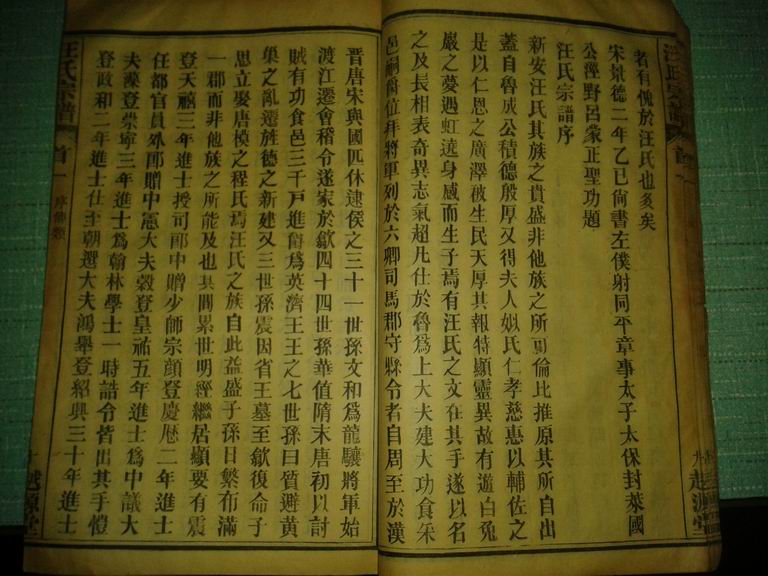 者有愧於汪氏也多矣
宋景德二年乙巳尚書左僕射同平章事太子太保封萊國
公溼野呂蒙正聖功題
汪氏宗譜序
新安汪氏其族之貴盛非他族之所可倫比推原其所自出
蓋自魯成公積德殷厚又得夫人姒氏仁孝慈惠以輔佐之
是以仁恩之廣澤被生民天厚其報特顯靈異故有遊白兔
嚴之夢遇虹遶身感而生子焉有汪氏之文在其手遂以名
之及長相表奇異志氣超凡仕於魯爲上大夫建大功食采
邑嗣爵位拜將軍列於六卿司馬郡守縣令者自周至於漢
晉唐宋與國匹休逮侯之三十一世孫文和爲龍驤將軍始
渡江遷會稽令遂家於歙四十四世孫華值隋末唐初以討
賊有功食邑三千戸進爵爲英濟王王之七世孫曰質避黃
巢之亂遷旌德之新建又三世孫震因省王墓至歙復命子
思立聚唐模之程氏焉汪氏之族自此益盛子孫日繁布滿
一郡而非他族之所能及也其間累世明經繼居顯要有震
登天禧三年進士授司郎中贈少師宗顏登慶厯二年進士
任都官員外郎贈中憲大夫穀登皇祐五年進士爲中議大
夫藻登崇寧三年進士爲翰林學士一時誥令皆出其手愷
登政和二年進士仕至朝選大夫鴻舉登紹興三十年進士
汪氏宗譜
首一
序傳類
越源堂